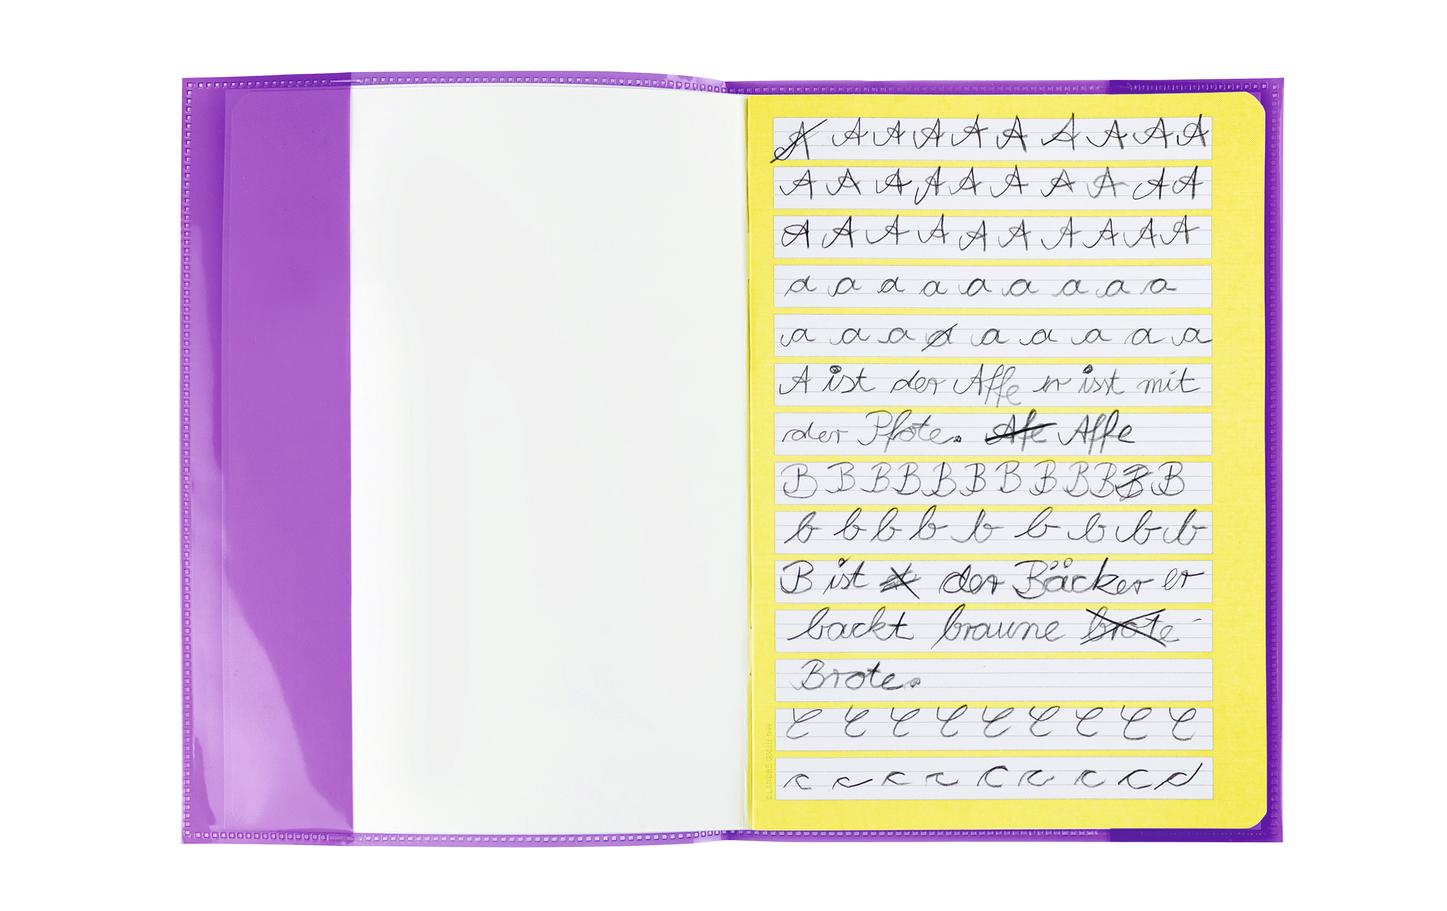 A A A A A A A A A A
A A A A A A A A A A
A A A A A A A A A
a a a a a a a a a
a a a a a a a a a
A ist der Affe er isst mit
der Pfote. Afe Affe
B B B B B B B B B B B B
b b b b b b b b b
B ist der Bäcker er
backt braune brote
Brote.
C C C C C C C C C
c c c c c c c c c